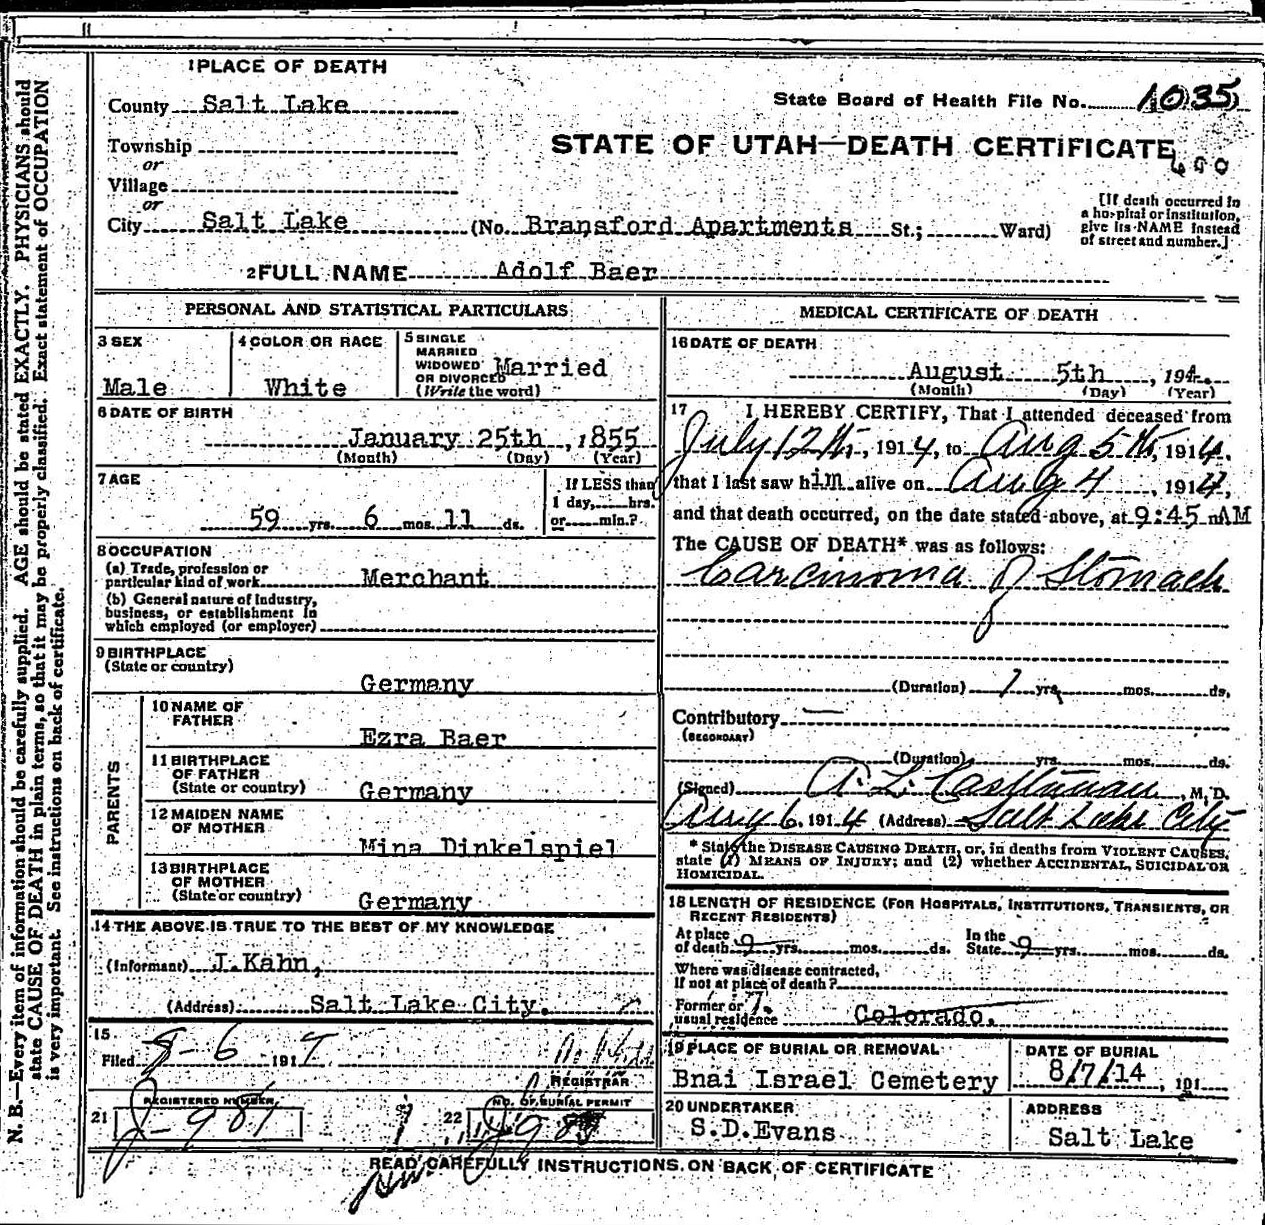 1 PLACE OF DEATH
County Salt Lake
State Board of Health File No. 1035
Township
or
Village
or
STATE OF UTAH—DEATH CERTIFICATE
City Salt Lake (No. Bransford Apartments St.; Ward)
[If death occurred in
a hospital or institution,
give its NAME instead
of street and number.]
2 FULL NAME Adolf Baer
PERSONAL AND STATISTICAL PARTICULARS
3 SEX
Male
4 COLOR OR RACE
White
5 SINGLE
MARRIED
WIDOWED
OR DIVORCED
(Write the word)
Married
6 DATE OF BIRTH
January 25th, 1855
(Month) (Day) (Year)
7 AGE
59 yrs. 6 mos. 11 ds.
If LESS than
1 day, hrs.
or min.?
8 OCCUPATION
(a) Trade, profession or
particular kind of work Merchant
(b) General nature of Industry,
business, or establishment in
which employed (or employer)
9 BIRTHPLACE
(State or country)
Germany
PARENTS
10 NAME OF
FATHER
Ezra Baer
11 BIRTHPLACE
OF FATHER
(State or country) Germany
12 MAIDEN NAME
OF MOTHER
Mina Dinkelspiel
13 BIRTHPLACE
OF MOTHER
(State or country) Germany
14 THE ABOVE IS TRUE TO THE BEST OF MY KNOWLEDGE
(Informant) J.Kahn,
(Address) Salt Lake City.
15
Filed 8-6 1914
REGISTRAR
21 REGISTERED NUMBER
J-981
22 NO. OF BURIAL PERMIT
MEDICAL CERTIFICATE OF DEATH
16 DATE OF DEATH
August 5th, 191
(Month) (Day) (Year)
17 I HEREBY CERTIFY, That I attended deceased from
July 12th, 1914, to Aug 5th, 1914,
that I last saw him alive on Aug 4, 1914,
and that death occurred, on the date stated above, at 9:45 AM
The CAUSE OF DEATH* was as follows:
Carcinoma of Stomach
(Duration) 1 yrs. mos. ds.
Contributory —
(SECONDARY)
(Duration) yrs. mos. ds.
(Signed) A. L. Castleman, M. D.
Aug 6, 1914 (Address) Salt Lake City
* State the DISEASE CAUSING DEATH, or, in deaths from VIOLENT CAUSES,
state (1) MEANS OF INJURY; and (2) whether ACCIDENTAL, SUICIDAL OR
HOMICIDAL.
18 LENGTH OF RESIDENCE (FOR HOSPITALS, INSTITUTIONS, TRANSIENTS, OR
RECENT RESIDENTS)
At place
of death 9 yrs. mos. ds.
In the
State 9 yrs. mos. ds.
Where was disease contracted,
If not at place of death?
Former or
usual residence Colorado.
19 PLACE OF BURIAL OR REMOVAL
Bnai Israel Cemetery
DATE OF BURIAL
8/7/14, 191
20 UNDERTAKER
S.D.Evans
ADDRESS
Salt Lake
READ CAREFULLY INSTRUCTIONS ON BACK OF CERTIFICATE
N. B.—Every item of information should be carefully supplied. AGE should be stated EXACTLY. PHYSICIANS should
state CAUSE OF DEATH in plain terms, so that it may be properly classified. Exact statement of OCCUPATION
is very important. See instructions on back of certificate.